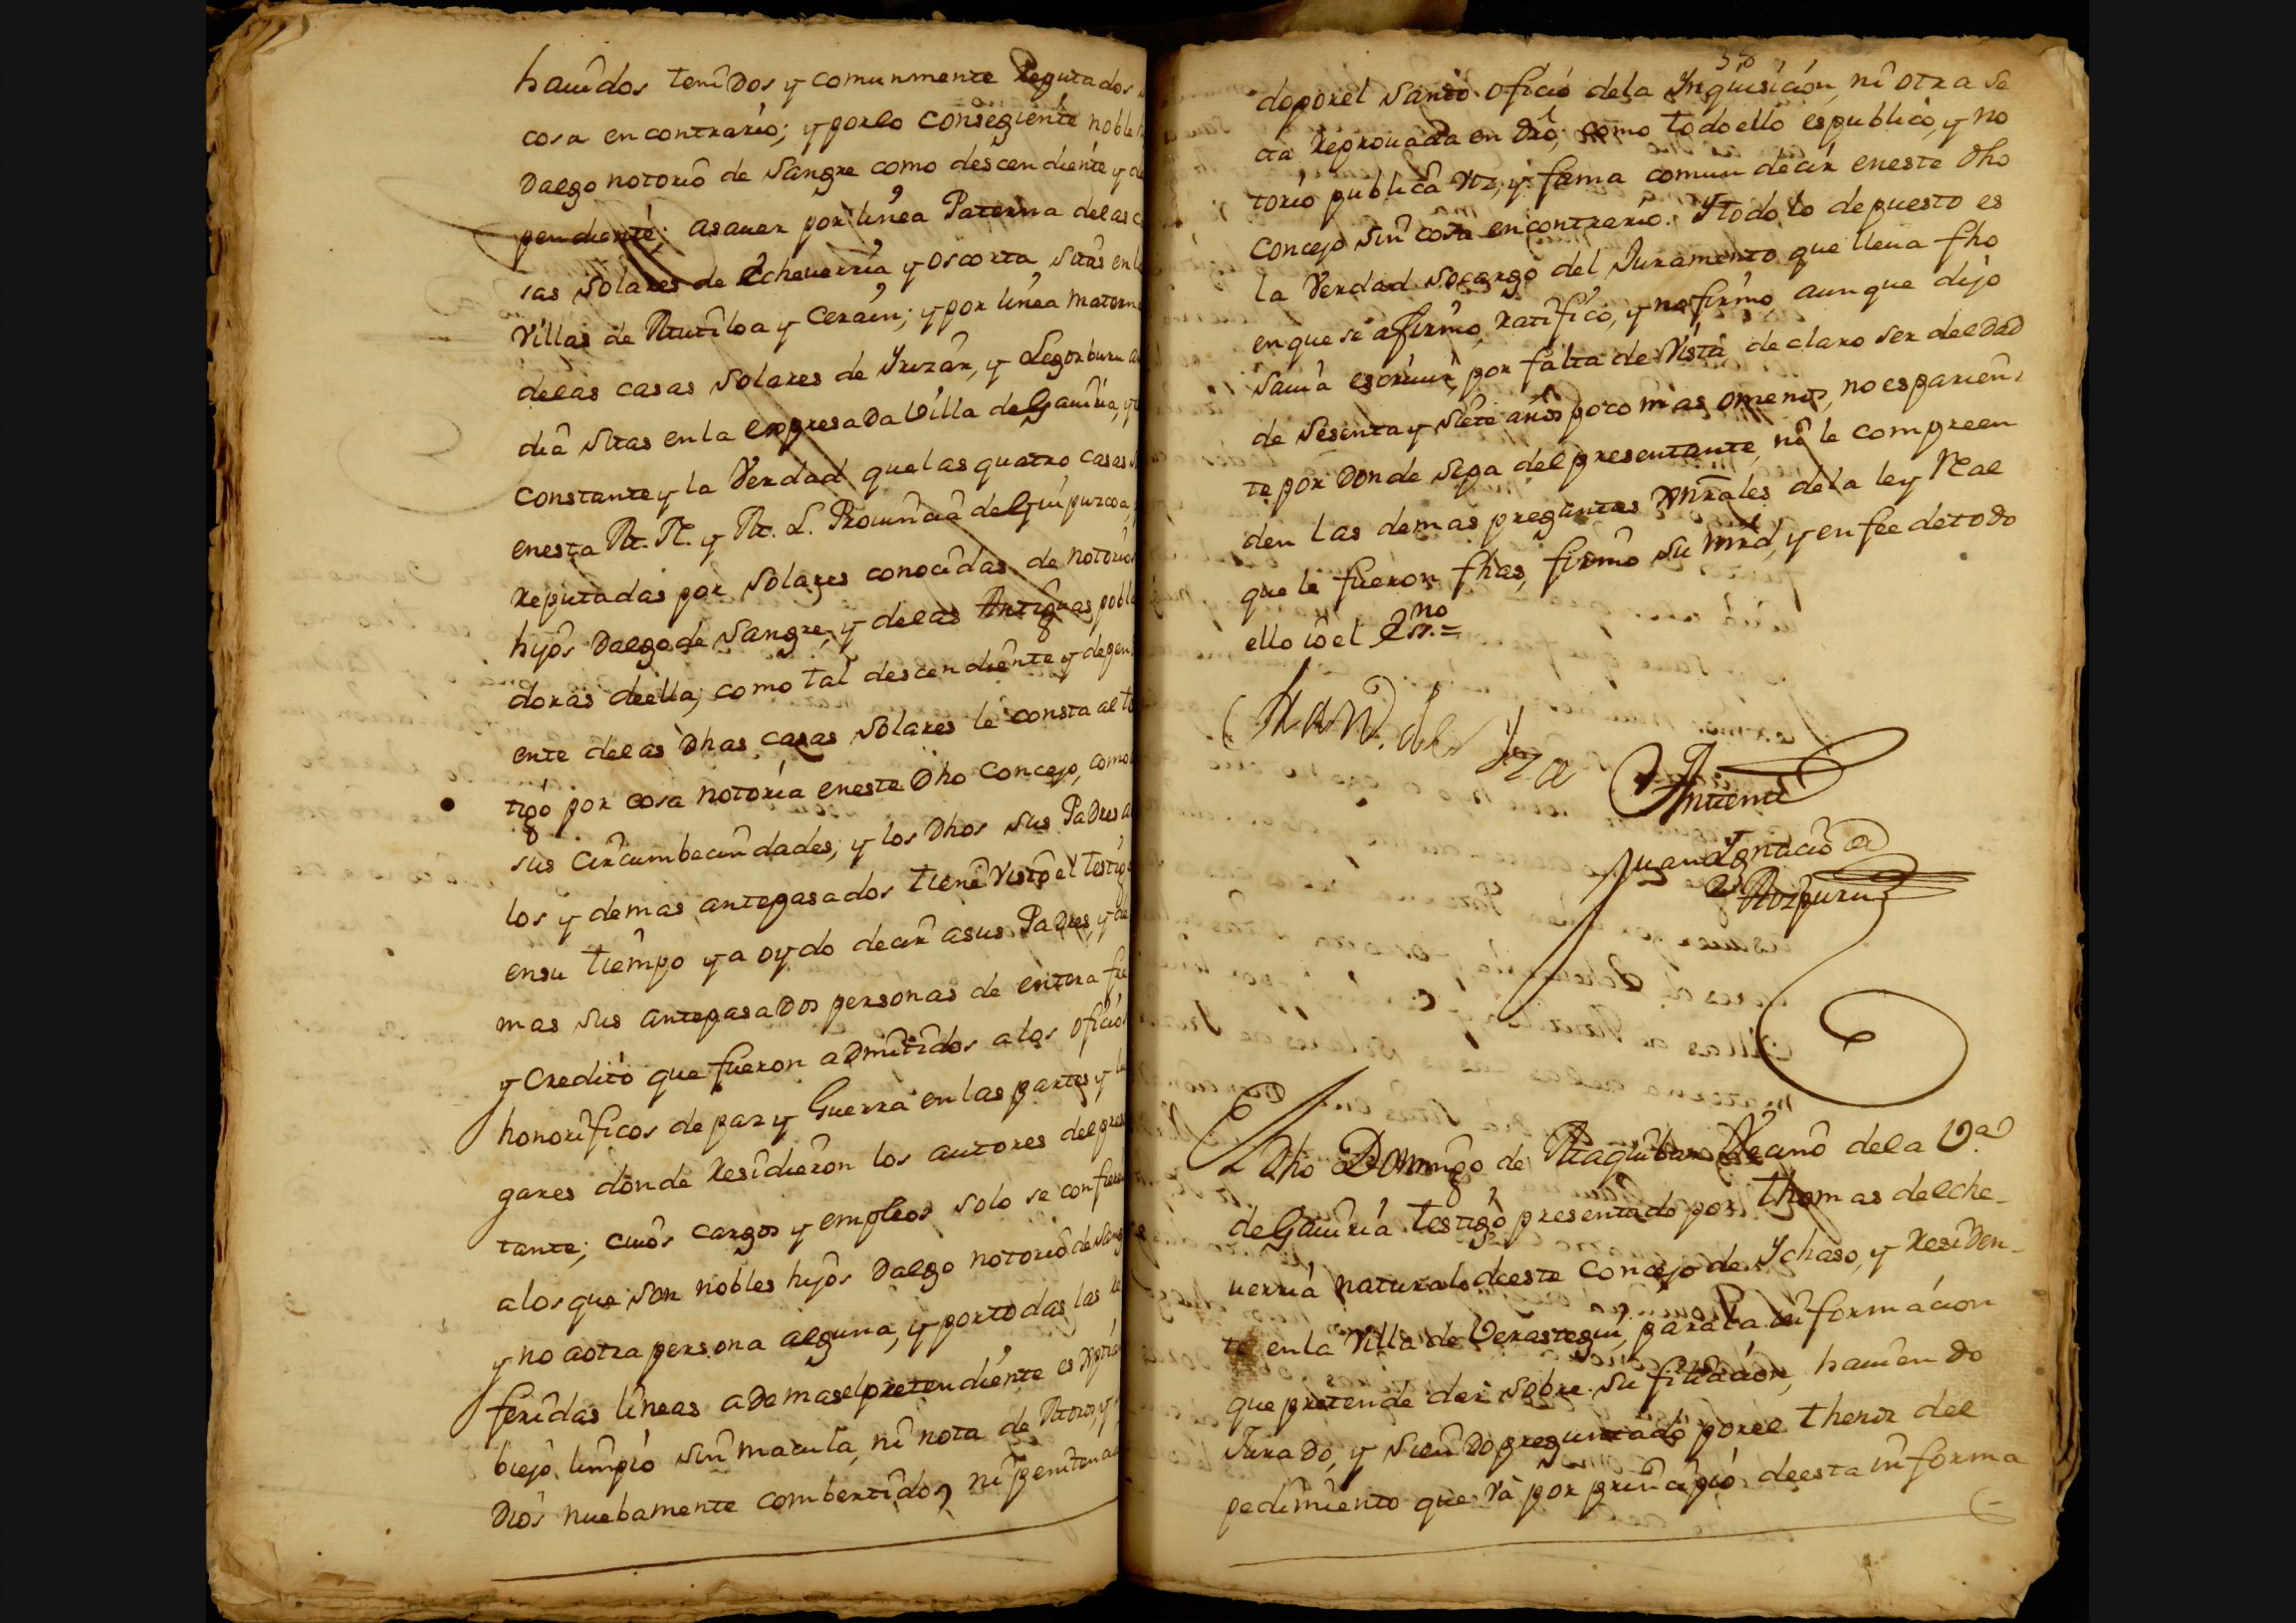 hauidos tenidos y comunmente Reputados
cosa en contrario; y porlo consegiente noble
Dalgo notorio de Sangre como descendiente y de
pendiente; asauer por linea Paterna delas c
sas Solares de Echeuerria y oscorta sitas en l
Villas de Mutiloa y Cerain; y por linea matern
delas casas Solares de Yrizar, y Legorburu
dia sitas en la expresada Villa de Gauiria, y
constante y la Verdad que las quatro casas
en esta M. N. y M. L. Prouincia de Guipuzcoa,
Reputadas por Solares conocidas de notorios
hijos Dalgo de Sangre, y delas Antiguas pobla
doras deella; como tal descendiente y depen
ente delas Dhas casas Solares le consta al t
tigo por cosa notoria en este Dho Concejo, como
sus circumbecindades; y los Dhos sus Padres a
los y demas antepasados tiene Visto el testig
ensu tiempo y a oydo decir asus Padres, y de
mas sus antepasados personas de entera fe
y Credito que fueron admitidos a los oficios
honorificos de paz y Guerra en las partes y lu
gares donde Residieron los autores del pres
tante; cuios cargos y empleos solo se confieren
alos que son nobles hijos Dalgo notorio de Sang
y no aotra persona alguna, y por todas las re
feridas lineas ademas el pretendiente es Xptia
biejo limpio sin macula, ni nota de Moros, y
Dios nuebamente combertidos, ni penitencia
38
do por el Santo oficio dela Ynquisicion, ni otra se
cta Reprouada en dro, como todo ello es publico, y no
torio publica voz, y fama comun decir en este Dho
Concejo sin cosa en contrario. Ytodo lo depuesto es
la Verdad socargo del Juramento que lleua fho
en que se afirmo, ratifico, y no firmo aunque dijo
sauia escriuir, por falta de Vista, declaro ser deedad
de Sesenta y siete años poco mas omenos, no es parien
te por donde sepa del presentante, ni le compreen
den las demas preguntas Gnrales dela ley Real
que le fueron fhas, firmo su mrd, y en fee de todo
ello io el Essno=
Fran. de Yza
Antemi
Juan Ygnacio
de Aozpuru
El Dho Domingo de Vecino dela Va
de Gauiria testigo presentado por Thomas de eche-
uerria natural deeste Concejo de Ychaso, y Residen-
te en la Villa de Verastegui, para la informacion
que pretende dar sobre su filiacion, hauiendo
Jurado, y siendo preguntado por el thenor del
pedimiento que va por principio deesta informa